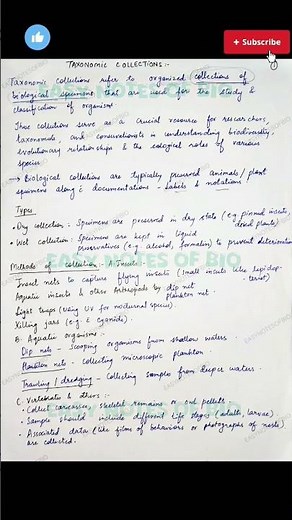 Subscribe
TAXONOMIC COLLECTIONS :-
Taxonomic collections refer to organized collections of
biological specimens that are used for the study &
classification of organisms.
These collections serve as a crucial resource for researchers,
taxonomists, and conservationists in understanding biodiversity,
evolutionary relationships & the ecological roles of various
species.
→ Biological collections are typically preserved animals / plant
specimens along with documentations - labels & notations.
Types
• Dry collection : Specimens are preserved in dry state (e.g. pinned insects,
dried plants)
• Wet collection : Specimens are kept in liquid
preservatives (e.g. alcohol, formalin) to prevent deterioration
EASY NOTES OF BIO
Methods of collection : A. Insects
Insect nets to capture flying insects (small insects like lepidop-
terist)
Aquatic insects & other Arthropods by dip net
plankton net.
Light traps (using UV for nocturnal species).
Killing jars (e.g. Cyanide).
B. Aquatic organisms :
Dip nets - Scooping organisms from shallow waters.
Plankton nets - collecting microscopic plankton
Trawling / dredging - Collecting samples from deeper waters.
C. Vertebrates & others :
• Collect carcasses, skeletal remains or owl pellets
• Sample should include different life stages (adults, larvae)
• Associated data (like films of behaviors or photographs of nests)
are collected.